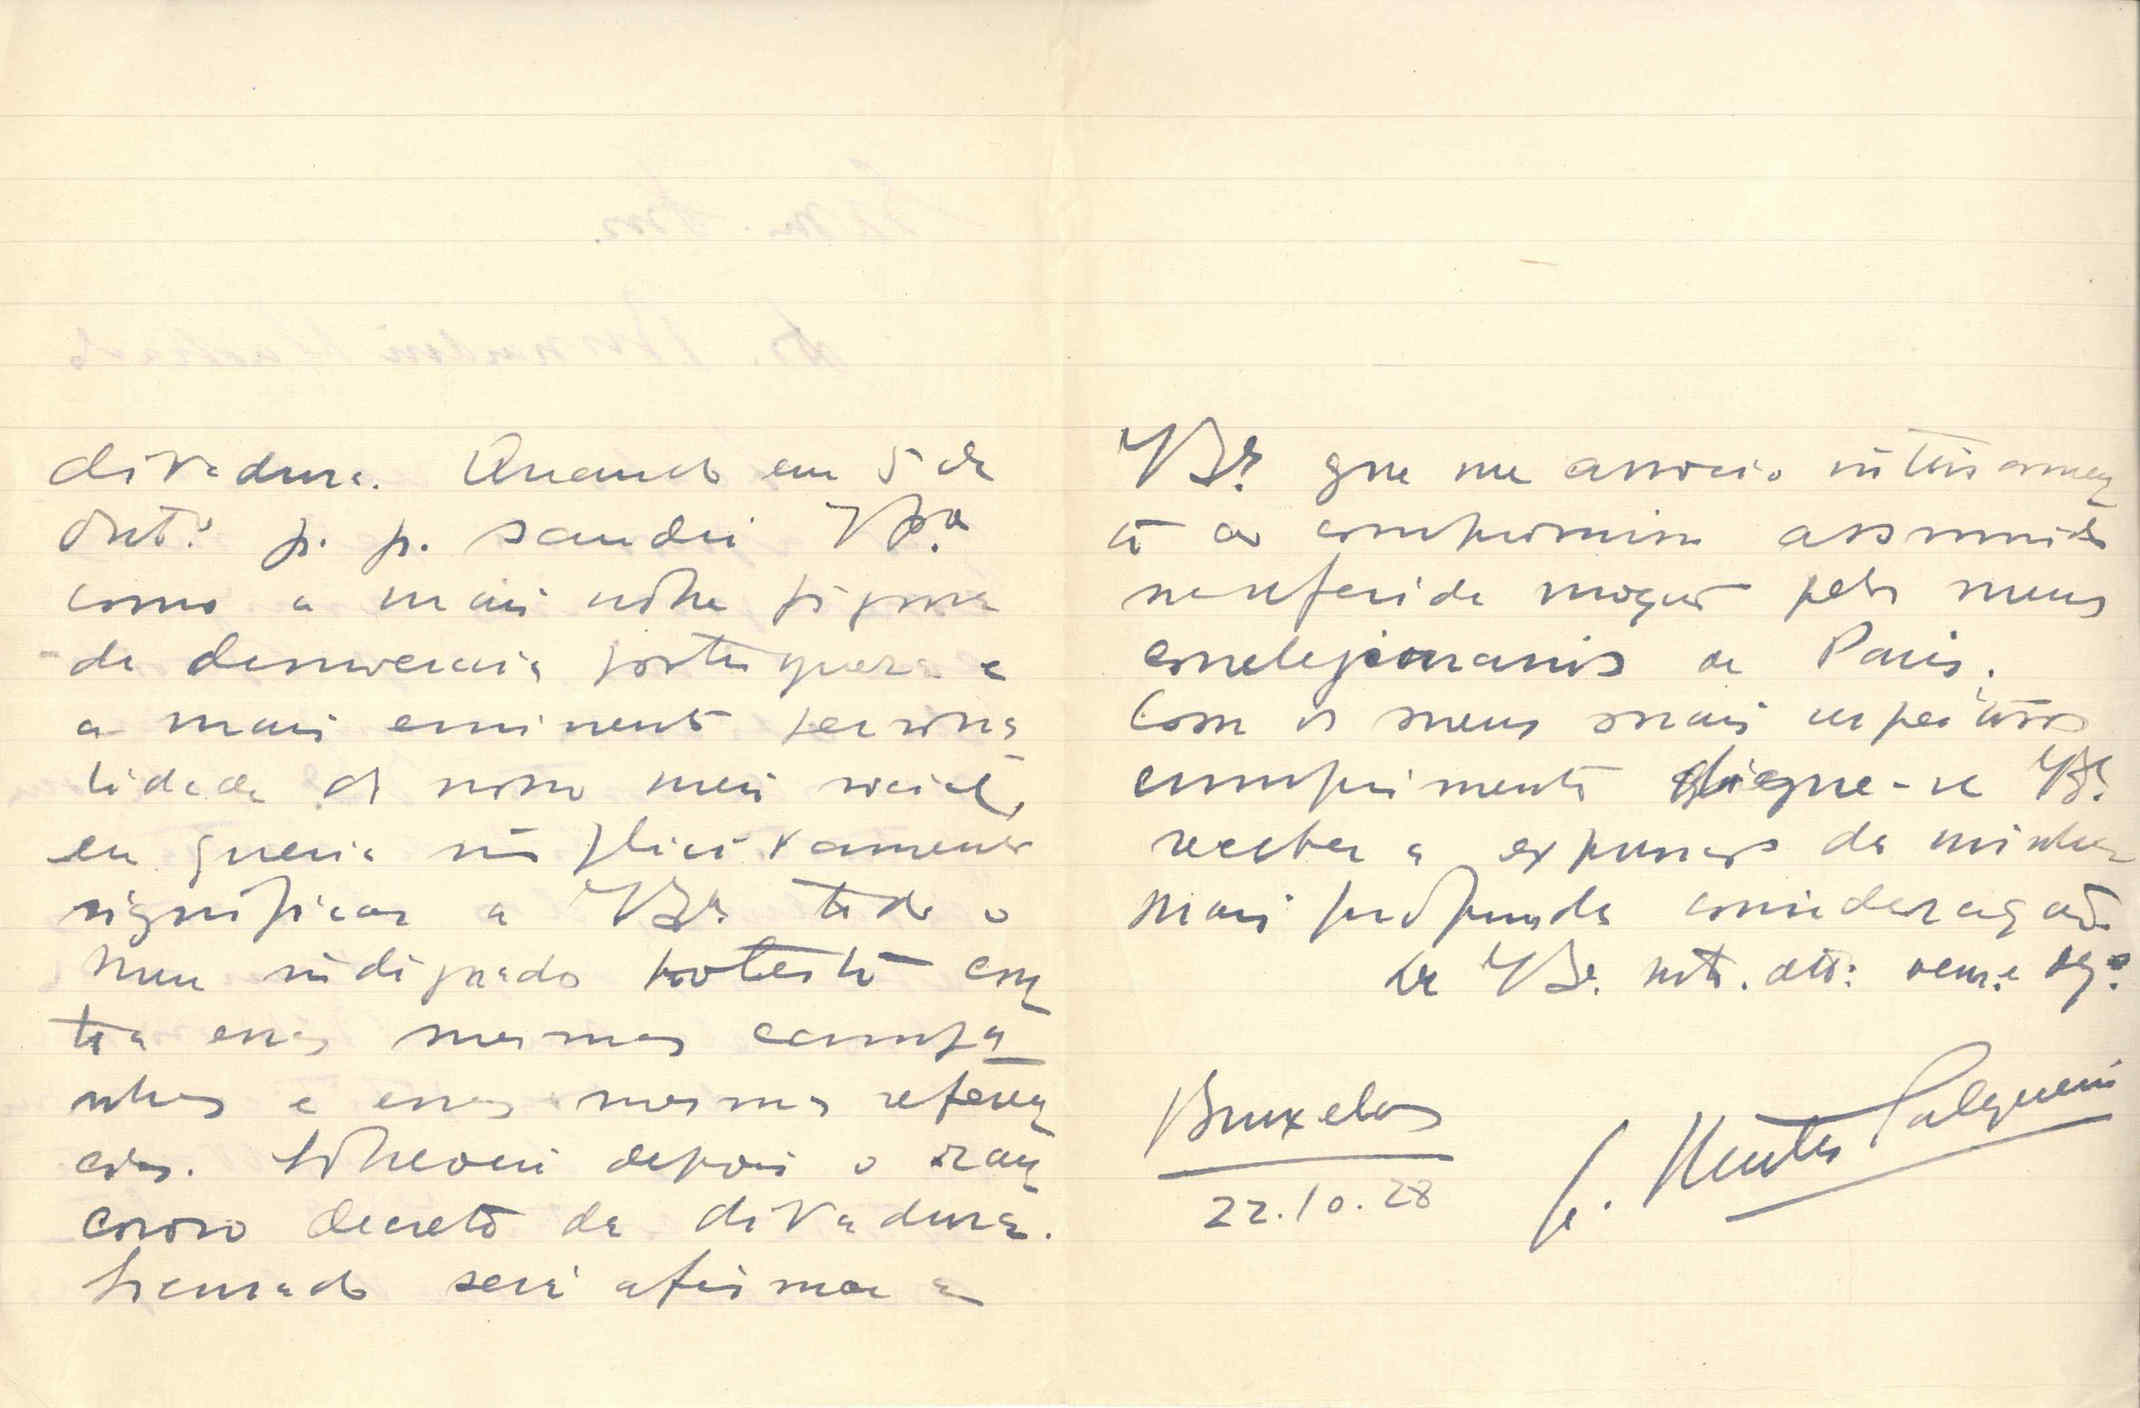 ditadura. Quando em 5 de
Outº p. p. saudei V Exª
como a mais nobre figura
da democracia portugueza e
a mais eminente persona
lidade do nosso meio social,
eu queria implicitamente
significar a V Exª todo o
meu indignado protesto con
tra essas mesmas campa
nhas e essas mesmas referen
cias. Sobreveiu depois o ran
coroso decreto da ditadura.
Escusado será afirmar a
V Exª que me associo inteiramen
te ao compromisso assumido
na referida moção pelos meus
correlegionarios de Paris.
Com os meus mais respeitosos
cumprimentos digne-se V Exª
receber a expressão da minha
mais profunda consideração
de V Ex. mtº. attº. venr. e obgº
Bruxelas
22.10.28
Mentes Salgueiro